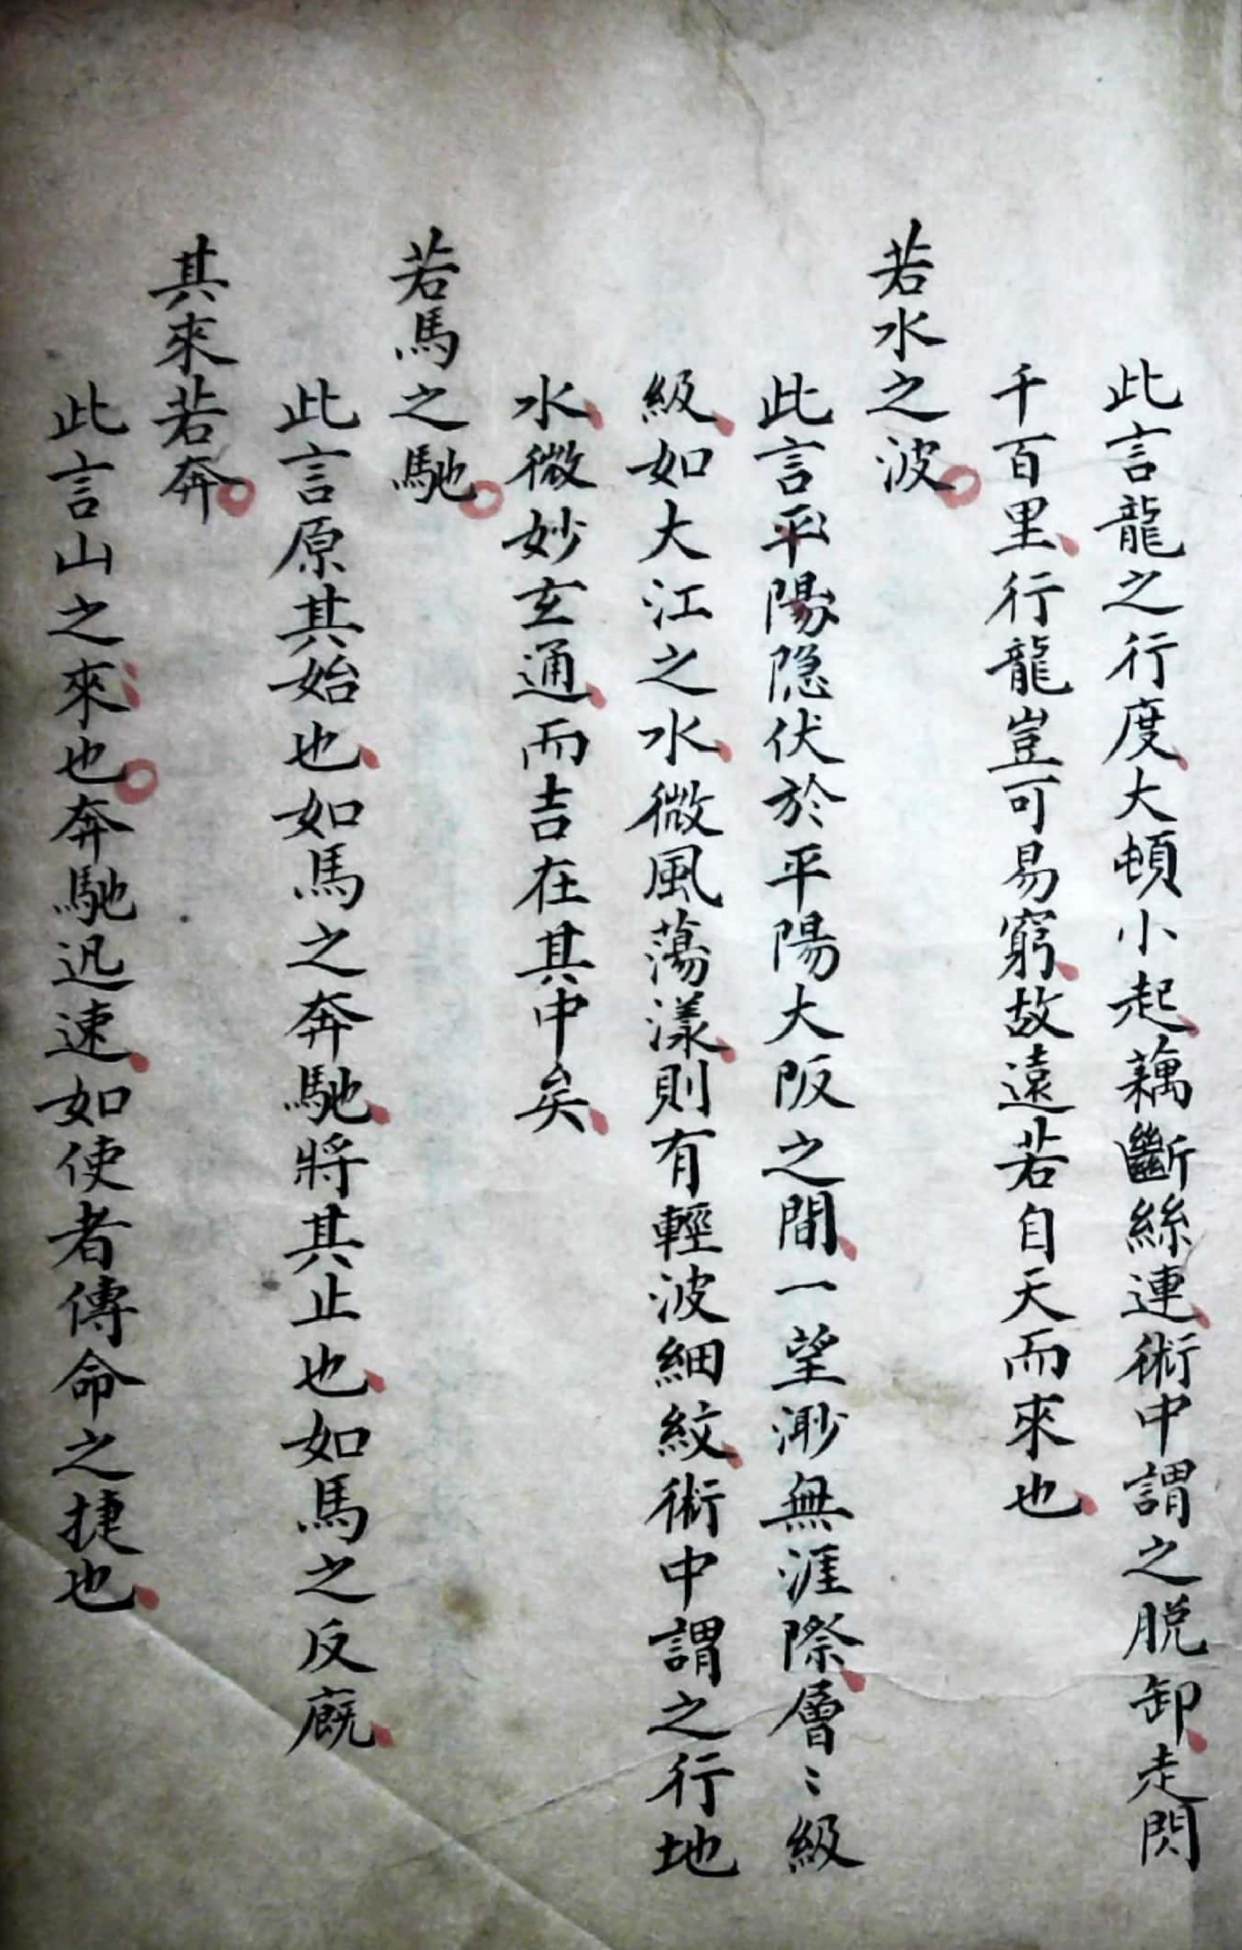 此言龍之行度大頓小起藕斷絲連術中謂之脱卸走閃
千百里行龍豈可易窮故遠若自天而來也
若水之波
此言平陽隐伏於平陽大阪之間一望渺無涯際層〻級
級如大江之水微風蕩漾則有輕波細紋術中謂之行地
水微妙玄通而吉在其中矣
若馬之馳
此言原其始也如馬之奔馳將其止也如馬之反廐
其來若奔
此言山之來也奔馳迅速如使者傳命之捷也